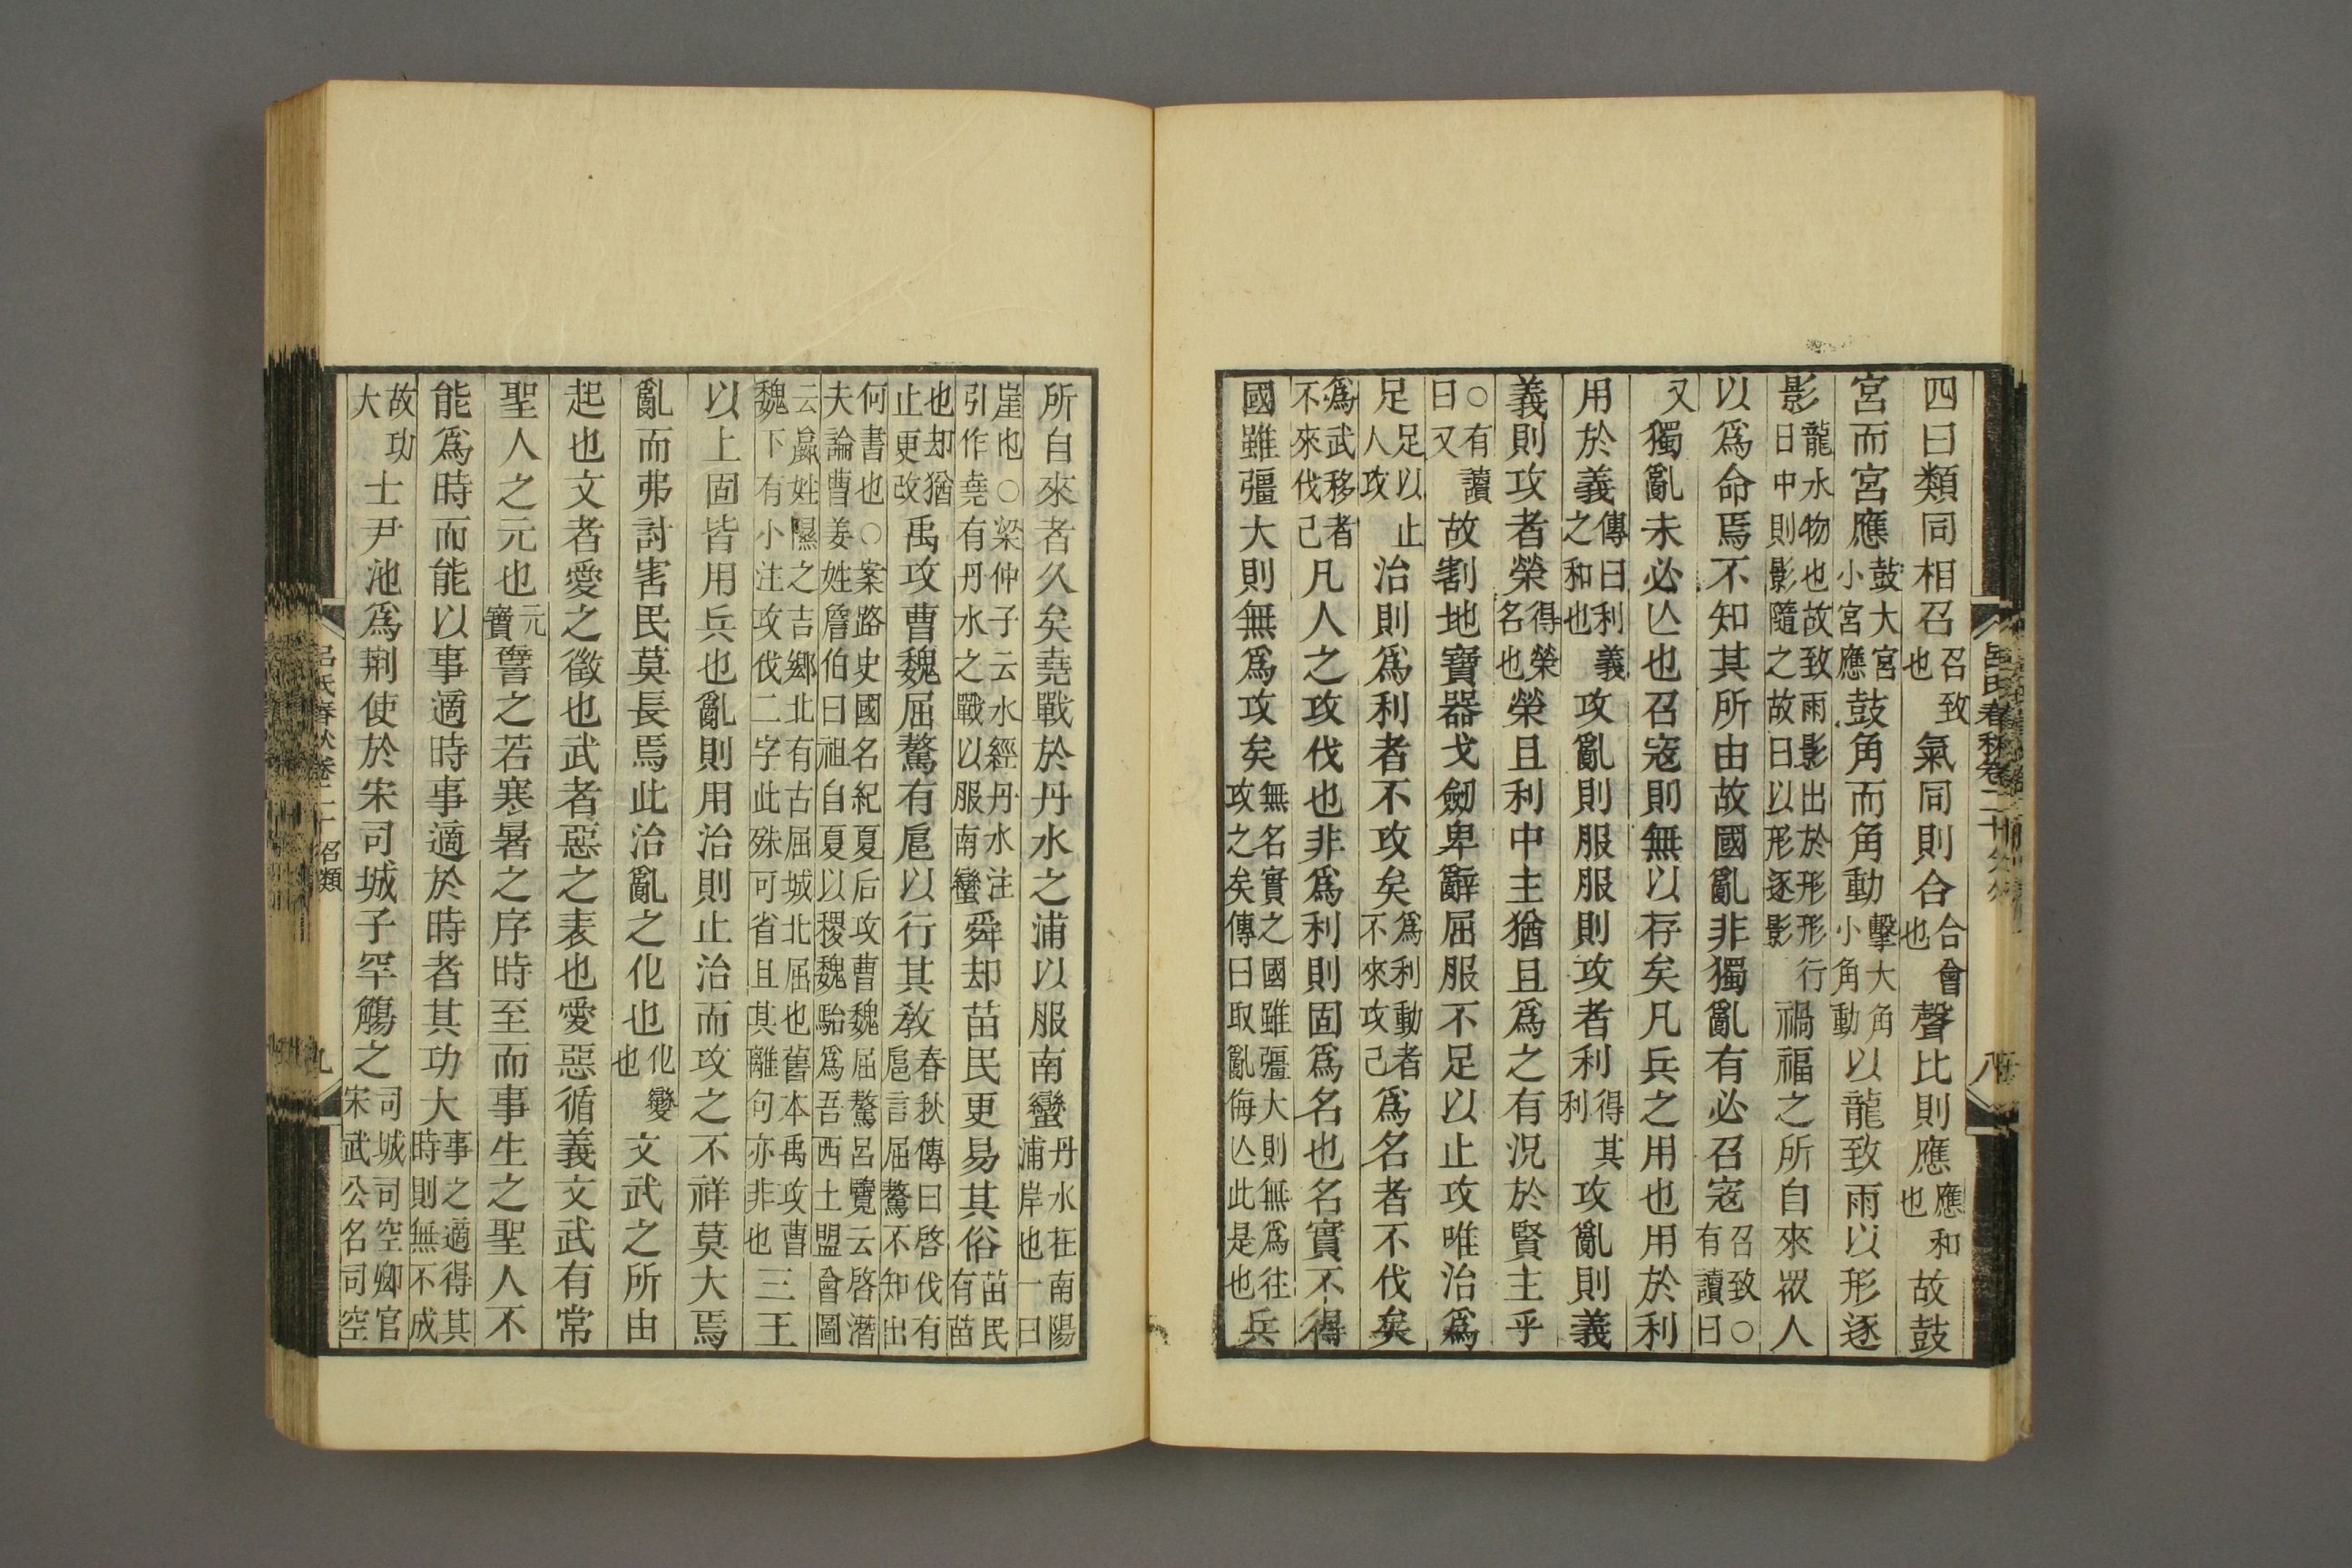 四曰類同相召召致也氣同則合合會也聲比則應應和也故鼓
宮而宮應鼓大宮小宮應鼓角而角動擊大角小角動以龍致雨以形逐
影龍水物也故致雨影出於形形行日中則影隨之故曰以形逐影禍福之所自來眾人
以爲命焉不知其所由故國亂非獨亂有必召寇召致○有讀曰
又獨亂未必亾也召寇則無以存矣凡兵之用也用於利
用於義傳曰利義之和也攻亂則服服則攻者利得其利攻亂則義
義則攻者榮得榮名也榮且利中主猶且爲之有況於賢主乎
○有讀曰又故割地寶器戈劒卑辭屈服不足以止攻唯治爲
足足以止人攻治則爲利者不攻矣爲利動者不來攻己爲名者不伐矣
爲武移者不來伐己凡人之攻伐也非爲利則固爲名也名實不得
國雖彊大則無爲攻矣無名實之國雖彊大則無爲往攻之矣傳曰取亂侮亾此是也兵
呂氏春秋卷二十
八
所自來者久矣堯戰於丹水之浦以服南蠻丹水在南陽浦岸也一曰
崖也○梁仲子云水經丹水注引作堯有丹水之戰以服南蠻舜却苗民更易其俗苗民有苗
也却猶止更改禹攻曹魏屈驁有扈以行其教春秋傳曰啓伐有扈言屈驁不知出
何書也○案路史國名紀夏后攻曹魏屈驁呂覽云啓潛夫論曹姜姓詹伯曰祖自夏以稷魏駘爲吾西土盟會圖
云嬴姓隰之吉鄉北有古屈城北屈也舊本禹攻曹魏下有小注攻伐二字此殊可省且其離句亦非也三王
以上固皆用兵也亂則用治則止治而攻之不祥莫大焉
亂而弗討害民莫長焉此治亂之化也化變也文武之所由
起也文者愛之徵也武者惡之表也愛惡循義文武有常
聖人之元也元寶譬之若寒暑之序時至而事生之聖人不
能爲時而能以事適時事適於時者其功大事之適得其時則無不成
故功大士尹池爲荆使於宋司城子罕觴之司城司空卿官宋武公名司空
呂氏春秋卷二十 召類
九